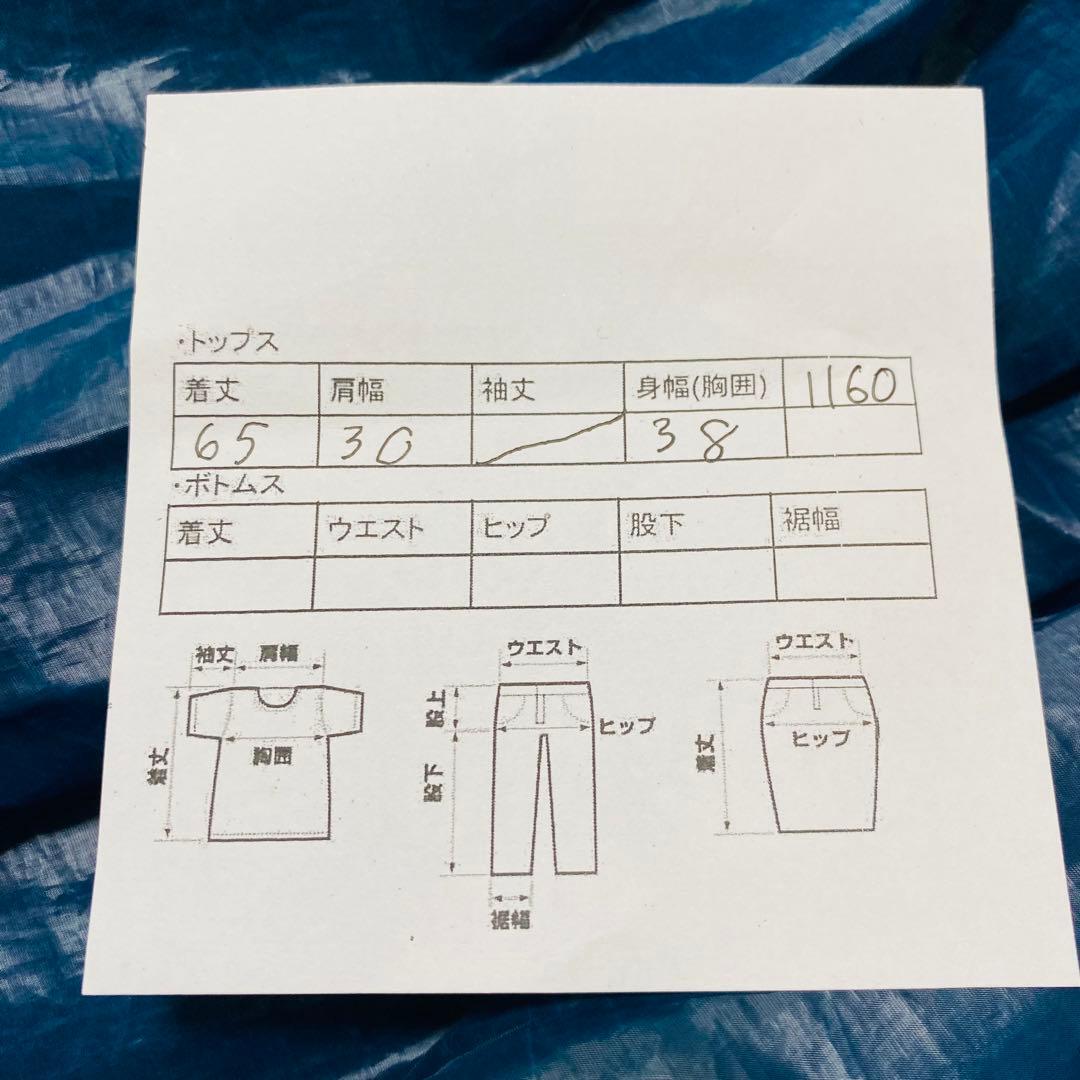 ・トップス
着丈 肩幅 袖丈 身幅(胸囲) 1160
65 30 38
・ボトムス
着丈 ウエスト ヒップ 股下 裾幅
袖丈 肩幅
着丈
胸囲
ウエスト
股上
ヒップ
股下
裾幅
ウエスト
着丈
ヒップ